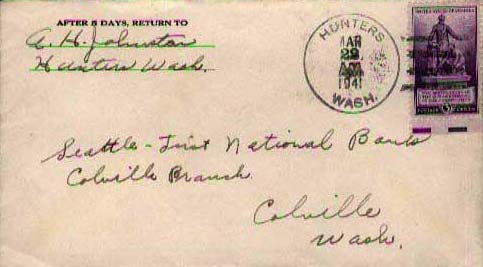 AFTER 5 DAYS, RETURN TO
A. H. Johnston
Hunters Wash.
HUNTERS
MAR
29
A.M.
1941
WASH.
Seattle-First National Bank
Colville Branch
Colville
Wash.